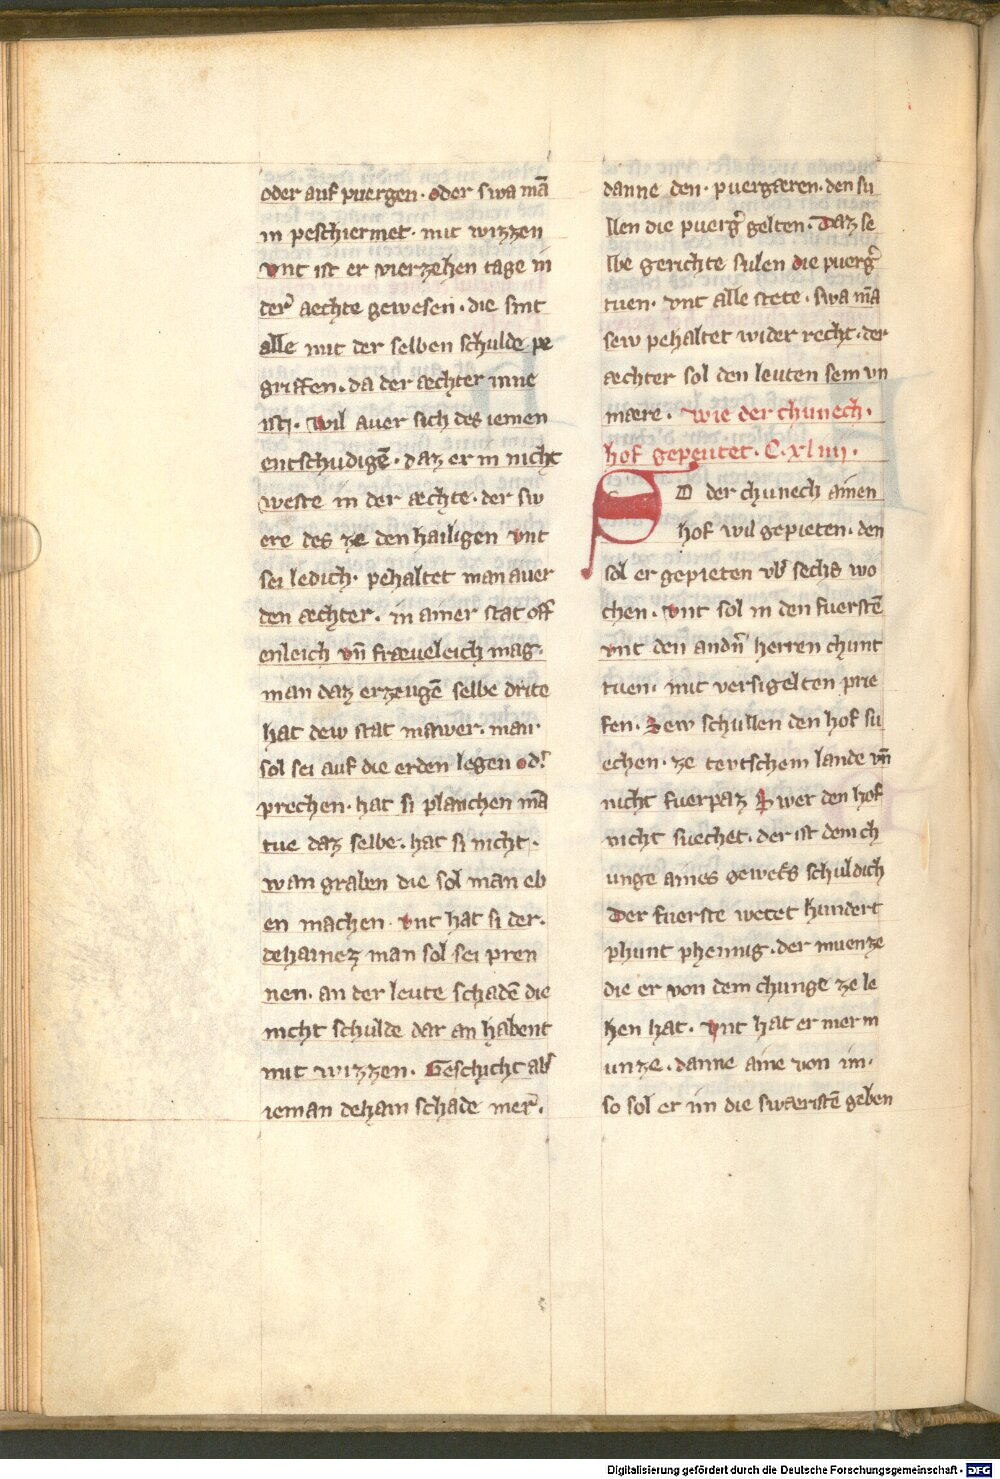 oder auf puergen · oder swa mā
in peschiermet · mit wizzen
vnt ist er vierzehen tage in
der aechte gewesen · die sint
alle mit der selben schulde pe
griffen · da der æchter inne
ist · wil auer sich des iemen
entschudigē · daz er in nicht
weste in der æchte · der sw
ere des ze den hailigen vnt
sei ledich · pehaltet man auer
den æchter · in ainer stat off
enleich vn̄ fræueleich mag ·
man daz erzeugē selbe drite
hat dew stat mawer · man
sol sei auf die erden legen od̕
prechen · hat si planchen mā
tue daz selbe · hat si nicht ·
wan graben die sol man eb
en machen · vnt hat si der ·
dehainez man sol sei pren
nen · an der leute schadē die
nicht schulde dar an habent
mit wizzen · Geschicht ab̕
ieman dehain schade mer̕ ·
danne den · puergæren · den su
llen die puerg̕ gelten · Daz se
lbe gerichte sulen die puerg̕
tuen · vnt alle stete · swa mā
sew pehaltet wider recht · der
æchter sol den leuten sem vn
mære · wie der chunech ·
hof gepeutet · C · xliiij ·
SO der chunech ainen
hof wil gepieten · den
sol er gepieten vb̕ sechs wo
chen · vnt sol in den fuerstē
vnt den andn̕ herren chunt
tuen · mit versigelten prie
fen · Sew schullen den hof su
echen · ze tevtschem lande vn̄
nicht fuerpaz Swer den hof
nicht suechet · der ist dem ch
unge aines gewets schuldich
Der fuerste wetet hundert
phunt phennig · der muenze
die er von dem chunge ze le
hen hat · vnt hat er mer m
unze · danne aine von im ·
so sol er im die swæristē geben
Digitalisierung gefördert durch die Deutsche Forschungsgemeinschaft - DFG